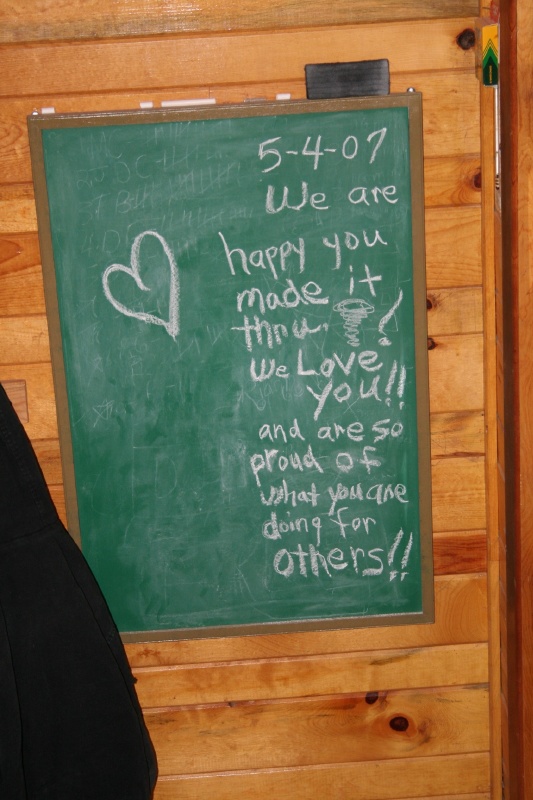 5-4-07
We are
happy you
made it
thru. !
We Love
you!!
and are so
proud of
what you are
doing for
others!!